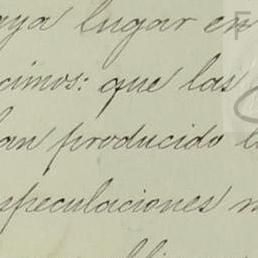 aya lugar en
cimos: que las
an producido l
speculaciones n